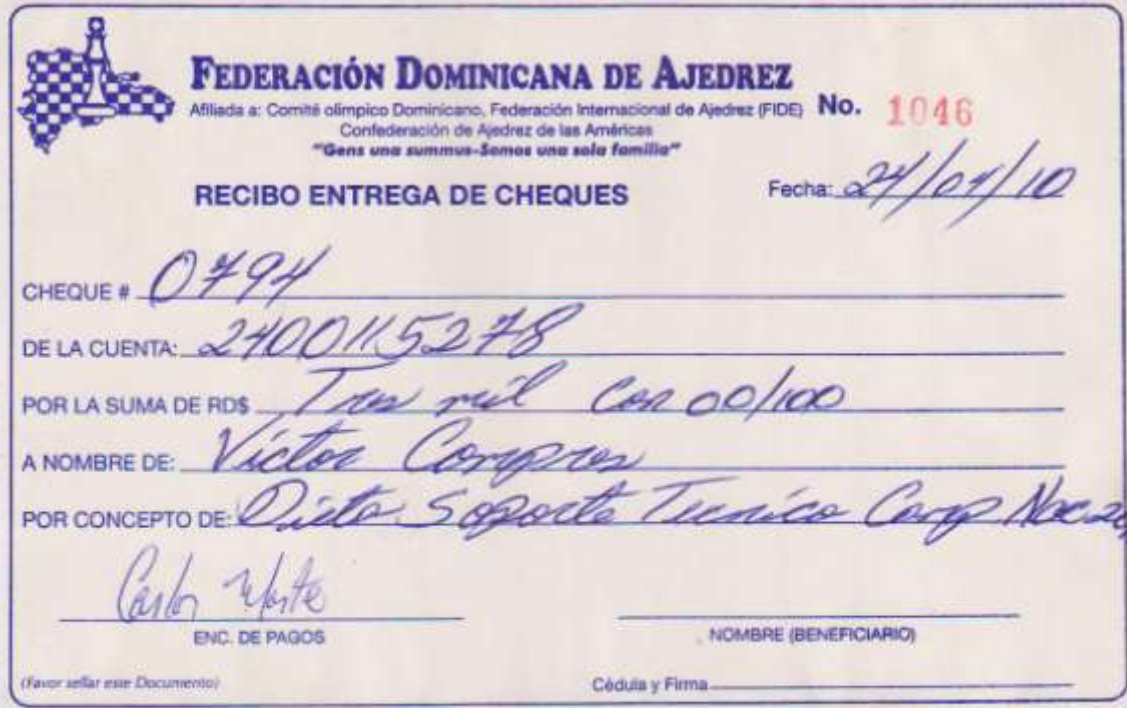 FEDERACIÓN DOMINICANA DE AJEDREZ
Afiliada a: Comité olímpico Dominicano, Federación Internacional de Ajedrez (FIDE) No. 1046
Confederación de Ajedrez de las Américas
"Gens una summus-Somos una sola familia"
RECIBO ENTREGA DE CHEQUES
Fecha: 24/04/10
CHEQUE # 0794
DE LA CUENTA: 2400115278
POR LA SUMA DE RD$ Tres mil con 00/100
A NOMBRE DE: Victor
POR CONCEPTO DE: Dieta Soporte Tecnico Camp Nac
Carlos
ENC. DE PAGOS
NOMBRE (BENEFICIARIO)
(Favor sellar este Documento)
Cédula y Firma